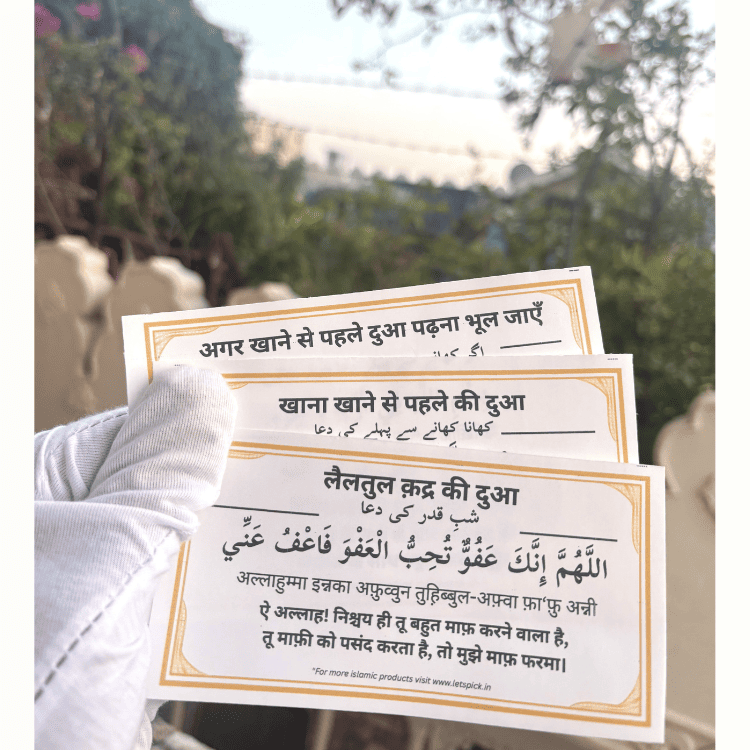 अगर खाने से पहले दुआ पढ़ना भूल जाएँ
खाना खाने से पहले की दुआ
کھانا کھانے سے پہلے کی دعا
लैलतुल क़द्र की दुआ
شبِ قدر کی دعا
اللَّهُمَّ إِنَّكَ عَفُوٌّ تُحِبُّ الْعَفْوَ فَاعْفُ عَنِّي
अल्लाहुम्मा इन्नका अफ़ुव्वुन तुह़िब्बुल-अफ़्वा फ़ा‘फ़ु अन्नी
ऐ अल्लाह! निश्चय ही तू बहुत माफ़ करने वाला है,
तू माफ़ी को पसंद करता है, तो मुझे माफ़ फरमा।
*For more islamic products visit www.letspick.in